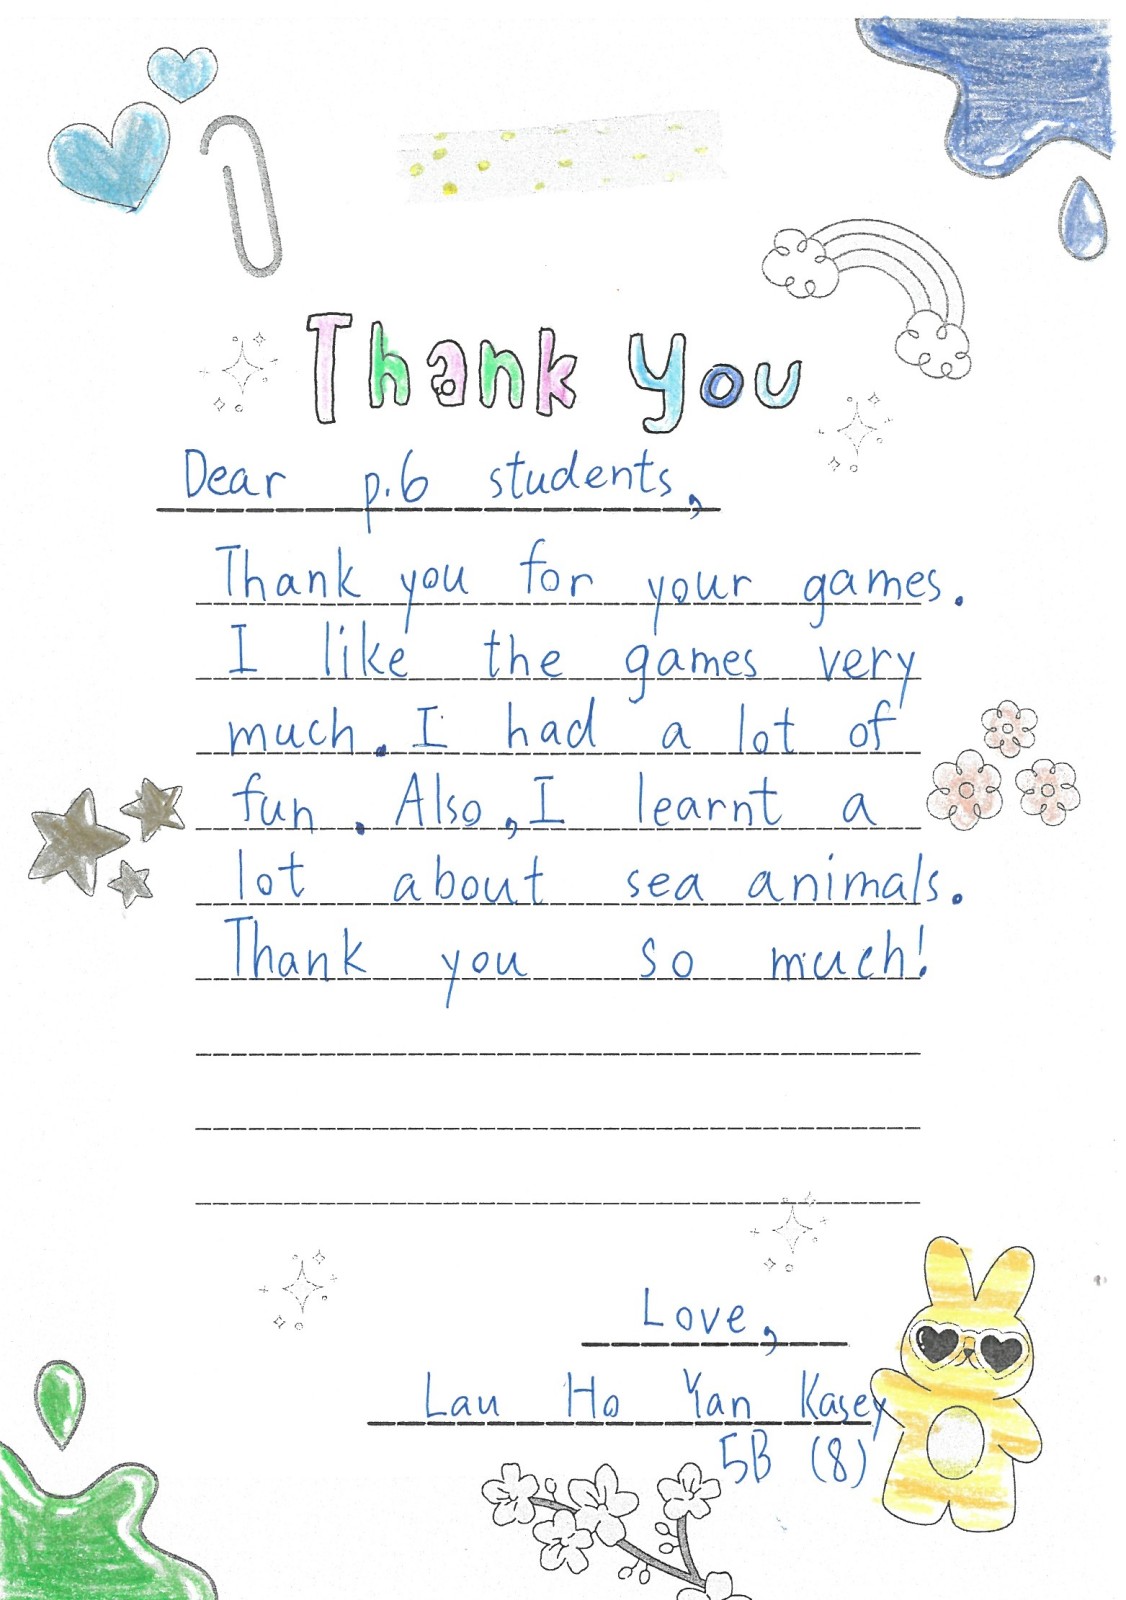 Thank You
Dear p.6 students,
Thank you for your games.
I like the games very
much. I had a lot of
fun. Also, I learnt a
lot about sea animals.
Thank you so much!
Love,
Lau Ho Yan Kasey
5B (8)